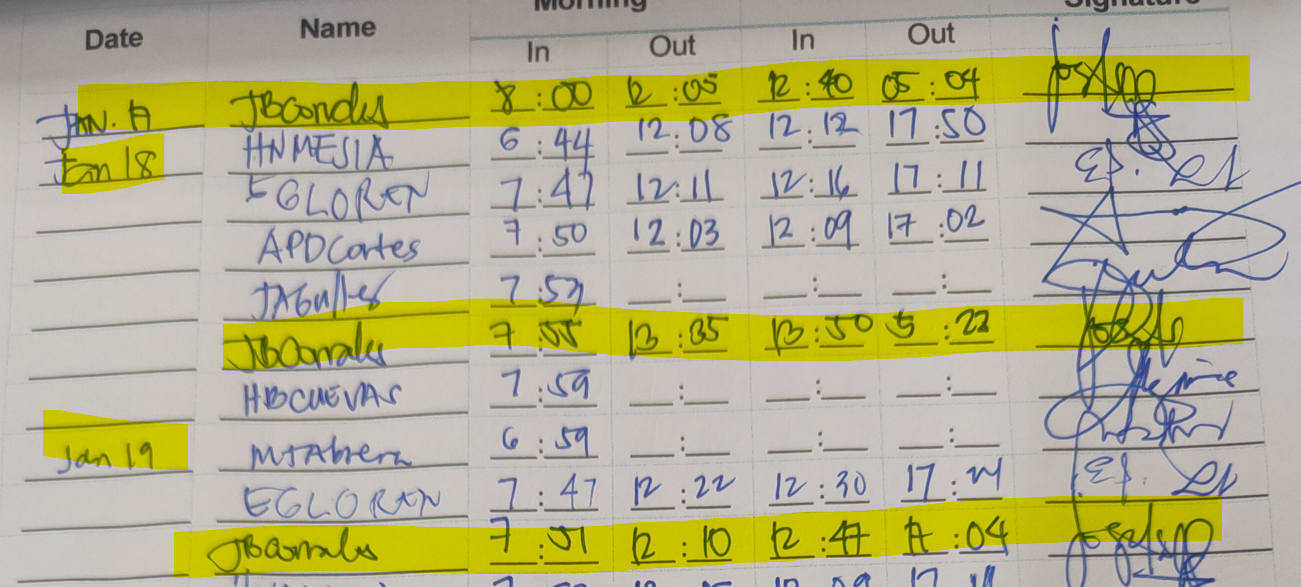 Morning Signature
Date Name In Out In Out
Jan. 17 JBCorrales 8:00 12:05 12:40 05:04
Jan 18 HNMESIA 6:44 12:08 12:12 17:50
EGLOREN 7:47 12:11 12:16 17:11
APDCortes 7:50 12:03 12:09 17:02
7:57 __:__ __:__ __:__
JBCorrales 7:55 13:35 13:50 5:22
HBCUEVAS 7:59 __:__ __:__ __:__
Jan 19 MTAbrera 6:59 __:__ __:__ __:__
EGLOREN 7:47 12:22 12:30 17:21
JBCorrales 7:51 12:10 12:47 17:04